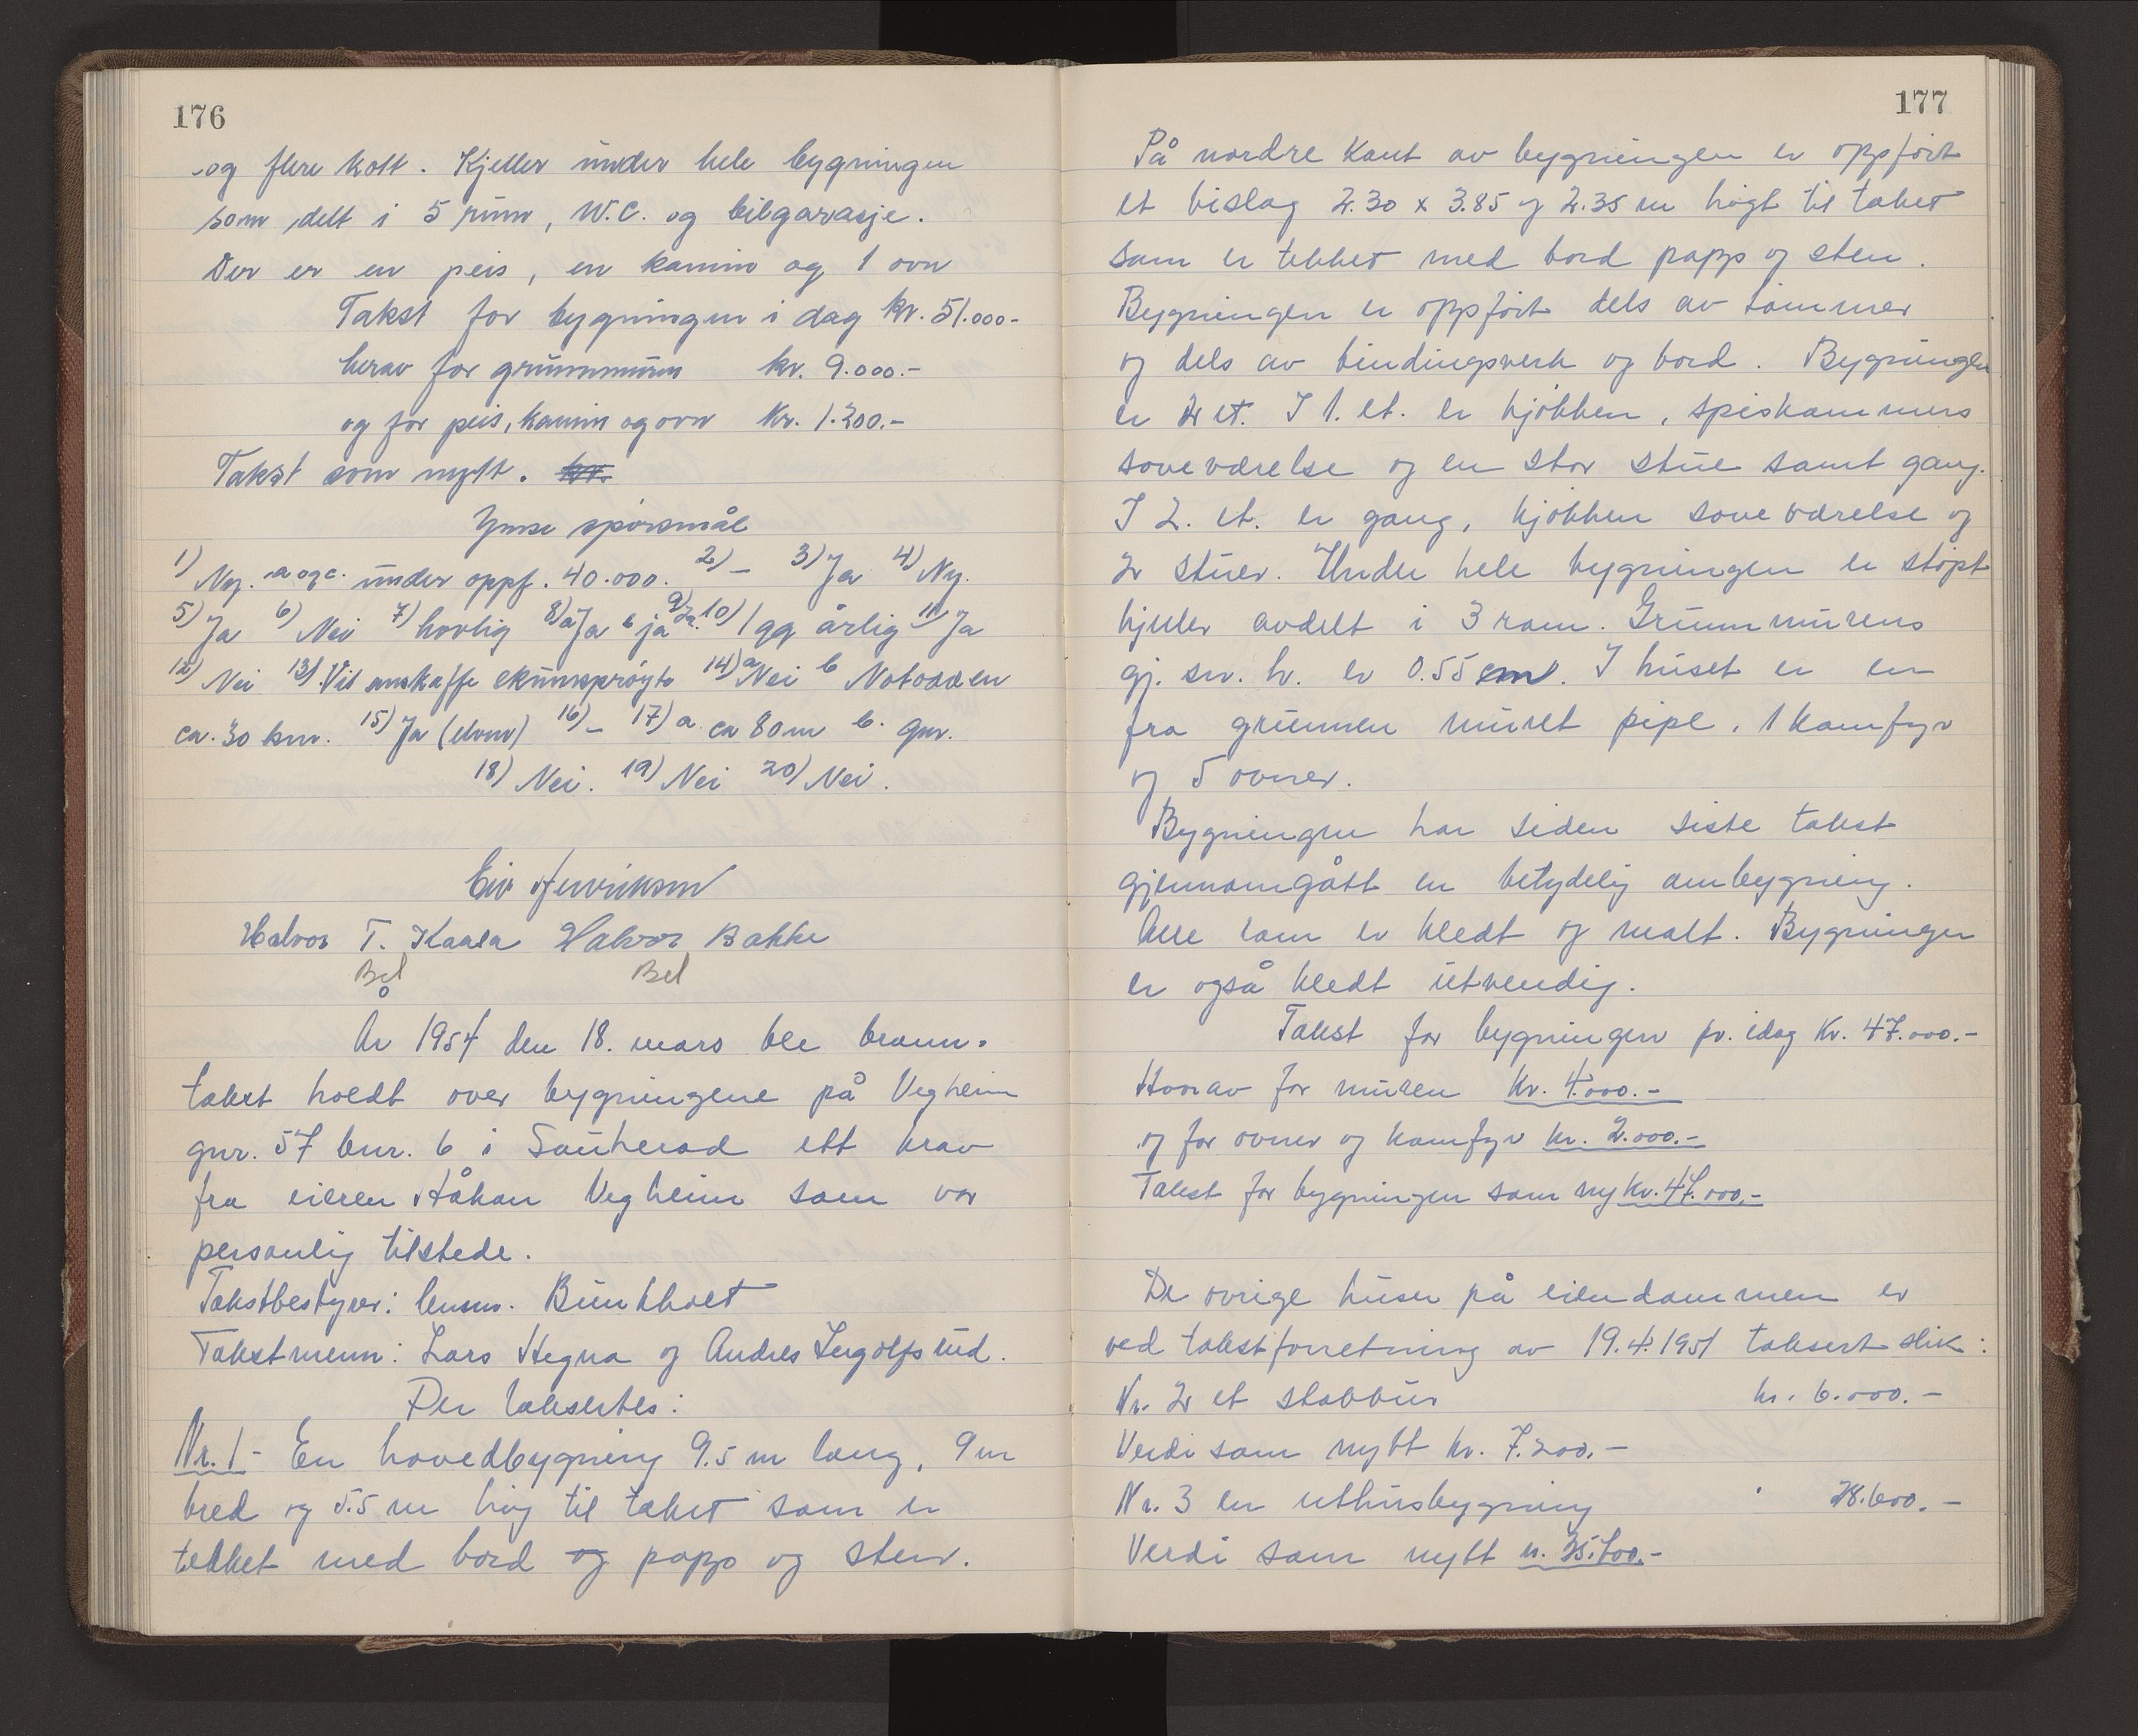 176
og flere kott. Kjeller under hele bygningen
som delt i 5 rum, W.C. og bilgarasje.
Der er en peis, en kamin og 1 ovn
Takst for bygningen i dag kr. 51.000-
herav for grunnmuren kr. 9.000.-
og for peis, kamin og ovn kr. 1.200.-
Takst som nytt. kr.
Ymse spörsmål
1) Ny. a og c. under oppf. 40.000. 2) - 3) Ja 4) Ny.
5) Ja 6) Nei 7) hovlig 8) a Ja b ja 9) Ja. 10) 1 gg årlig 11) Ja
12) Nei 13) Vil anskaffe skumsprøyte 14) a Nei b Notodden
ca. 30 km. 15) Ja (elven) 16) - 17) a. ca 80 m b.
18) Nei. 19) Nei 20) Nei.
Eiv Henriksen
Halvor T. Kaasa Halvor Bakke
Bel Bel
År 1954 den 18. mars ble brann-
takst holdt over bygningene på Vegheim
gnr. 57 bnr. 6 i Sauherad ett krav
fra eieren Håkon Vegheim som var
personlig tilstede.
Takstbestyrer: lensm. Bunkholt
Takstmenn: Lars Hegna og Andres Ingolfsrud.
Der taksertes:
Nr. 1- En hovedbygning 9.5 m lang, 9 m
bred og 5.5 m høg til taket som er
tekket med bord og papp og sten.
177
På nordre kant av bygningen er oppført
et bislag 2.30 x 3.85 og 2.35 m högt til taket
som er tekket med bord papp og sten.
Bygningen er oppført dels av tømmer
og dels av bindingsverk og bord. Bygningen
er 2 et. I 1. et. er kjökken, spiskammers
soveværelse og en stor stue samt gang.
I 2. et. er gang, kjökken soveværelse og
2 stuer. Under hele bygningen er støpt
kjeller avdelt i 3 rom. Grunnmurens
gj. sn. h. er 0.55 cm. I huset er en
fra grunnen muret pipe, 1 komfyr
og 5 ovner.
Bygningen har siden siste takst
gjennomgått en betydelig ombygning.
Alle rom er kledt og malt. Bygningen
er også kledt utvendig.
Takst for bygningen pr. idag Kr. 47.000.-
Hvorav for muren Kr. 4.000.-
og for ovner og komfyr kr. 2.000.-
Takst for bygningen som ny kr. 47.000.-
De øvrige huser på eiendommen er
ved takstforretning av 19.4.1951 taksert slik:
Nr. 2 et stabbur kr. 6.000.-
Verdi som nytt kr. 7.200.-
Nr. 3 en uthusbygning " 28.600.-
Verdi som nytt